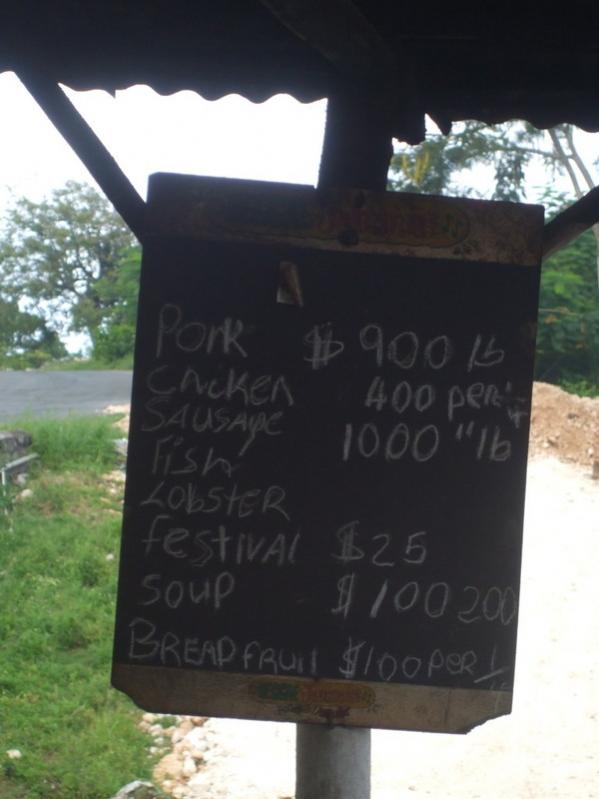 Pork $ 900 lb
Chicken 400 per 1/4
Sausage 1000 " lb
Fish
Lobster
Festival $25
Soup $100 200
BreadFruit $100 per